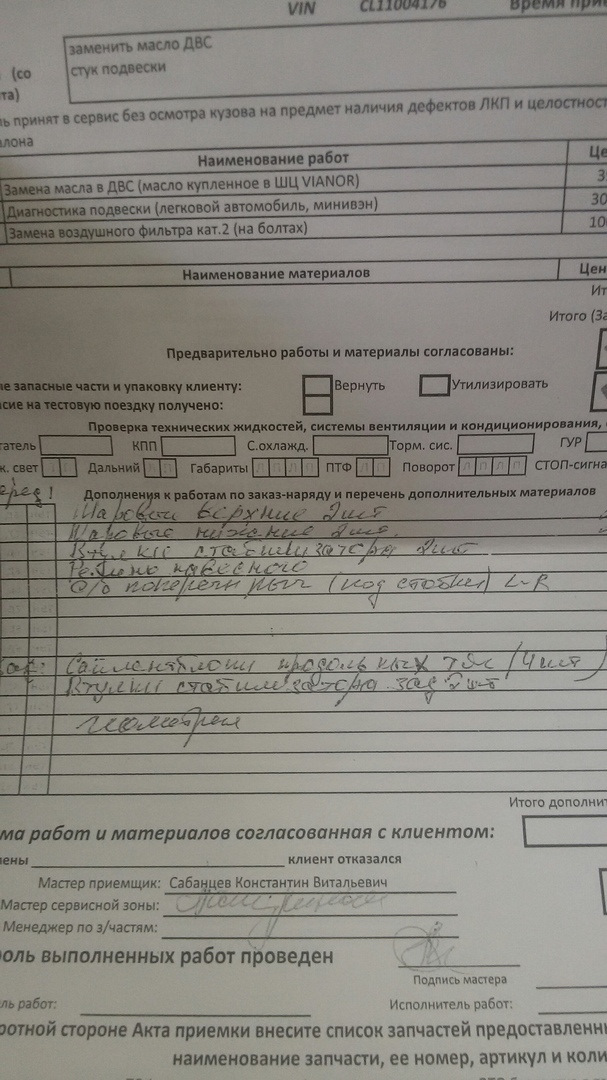 VIN CL11004176 Время при
заменить масло ДВС
(со стук подвески
та)
ль принят в сервис без осмотра кузова на предмет наличия дефектов ЛКП и целостнос
алона
Наименование работ Це
Замена масла в ДВС (масло купленное в ШЦ VIANOR) 3
Диагностика подвески (легковой автомобиль, минивэн) 30
Замена воздушного фильтра кат.2 (на болтах) 10
Наименование материалов Цен
Ит
Итого (За
Предварительно работы и материалы согласованы:
ые запасные части и упаковку клиенту: Вернуть Утилизировать
асие на тестовую поездку получено:
Проверка технических жидкостей, системы вентиляции и кондиционирования,
гатель КПП С.охлажд. Торм. сис. ГУР
к. свет Дальний Габариты ПТФ Поворот СТОП-сигна
Перед! Дополнения к работам по заказ-наряду и перечень дополнительных материалов
Шаровые верхние 2шт
Шаровые нижние 2шт.
Втулки стабилизатора 2шт
навесного
с/б поперечн рыч (под стойкой) L-R
Зад: Сайлентблоки продольных тяг (4шт)
Втулки стабилизатора зад 2шт
геометрия
Итого дополнит
ма работ и материалов согласованная с клиентом:
нены клиент отказался
Мастер приемщик: Сабанцев Константин Витальевич
Мастер сервисной зоны:
Менеджер по з/частям:
роль выполненных работ проведен
Подпись мастера
ль работ: Исполнитель работ:
оротной стороне Акта приемки внесите список запчастей предоставленн
наименование запчасти, ее номер, артикул и коли